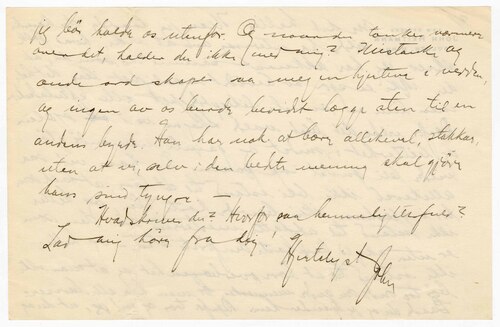 jeg bør holde os utenfor. Og naar du tænker nærmere
over det, holder du ikke med mig? Mistanke og
onde ord skaper saa megen hjertive i verden,
og ingen av os burde bevidst lægge sten til en
andens byrde. Han har nok at bære allikevel, stakkar,
uten at vi, selv i den bedste mening skal gjøre
hans smerte tyngre —
Hvad skriver du? Hvorfor saa hemmelighetsfuld?
Lad mig høre fra dig! Hjerteligst John